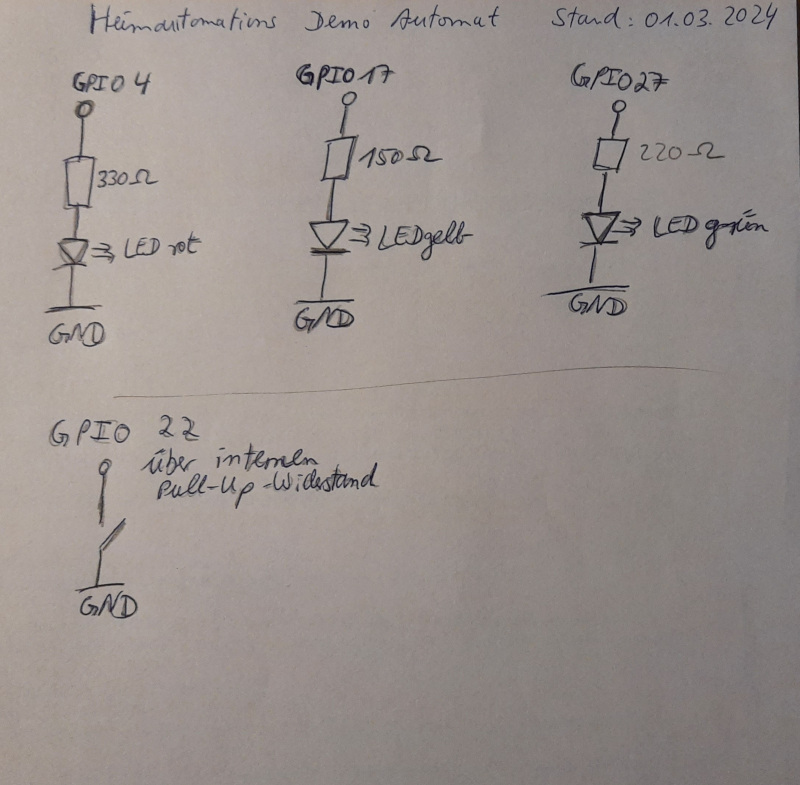 Heimautomations Demo Automat Stand: 01.03.2024
GPIO 4
GPIO 17
GPIO 27
330Ω
150Ω
220Ω
LED rot
LED gelb
LED grün
GND
GND
GND
GPIO 22
über internen
Pull-Up-Widerstand
GND